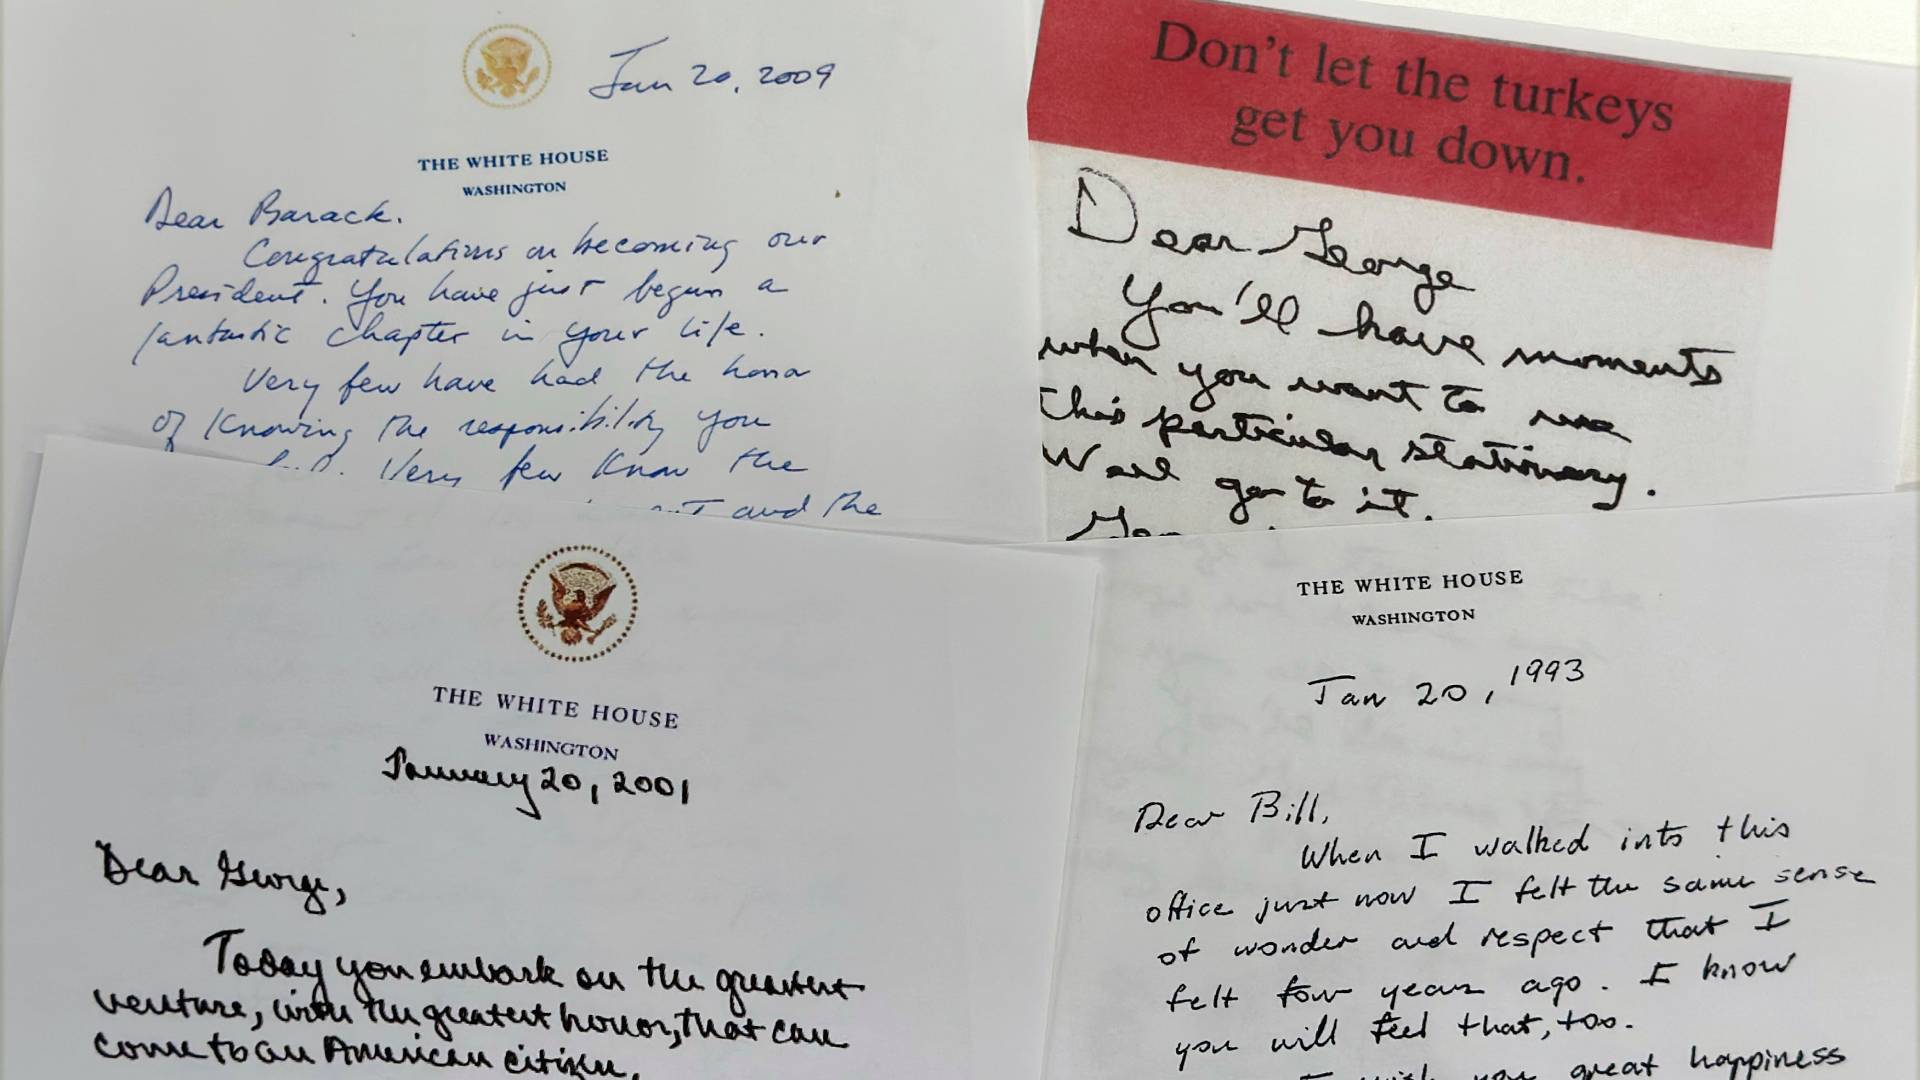 Jan 20, 2009
THE WHITE HOUSE
WASHINGTON
Dear Barack.
Congratulations on becoming our
President. You have just begun a
fantastic chapter in your life.
Very few have had the honor
of knowing the responsibility you
Very few know the
and the
Don't let the turkeys
get you down.
Dear George
You'll have moments
when you want to use
this particular stationary.
Well go to it.
THE WHITE HOUSE
WASHINGTON
January 20, 2001
Dear George,
Today you embark on the greatest
venture, with the greatest honor, that can
come to an American citizen.
THE WHITE HOUSE
WASHINGTON
Jan 20, 1993
Dear Bill,
When I walked into this
office just now I felt the same sense
of wonder and respect that I
felt four years ago. I know
you will feel that, too.
I wish you great happiness